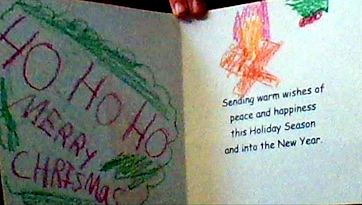 HO HO HO
MERRY
CHRISMAS
Sending warm wishes of
peace and happiness
this Holiday Season
and into the New Year.